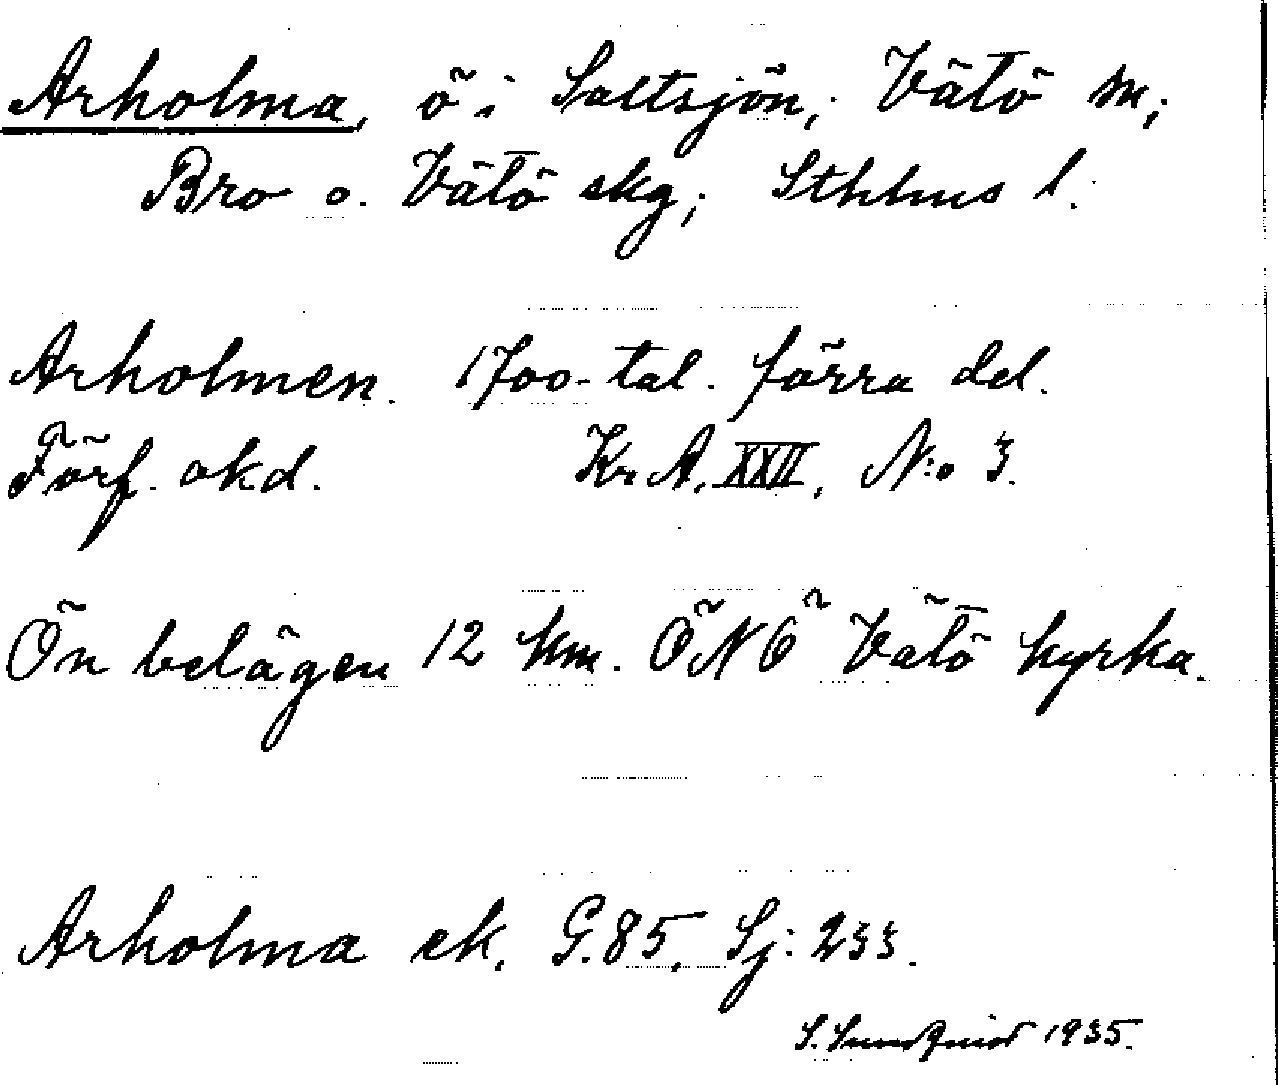 Arholma, ö i Saltsjön; Vätö sn;
Bro o. Vätö skg; Sthlms l.
Arholmen. 1700-tal. förra del.
Förf. okd. Kr. A. XXII, N:o 3.
Ön belägen 12 km. ÖNÖ Vätö kyrka.
Arholma ek. G.85. Sj: 233.
S. Sundquist 1935.